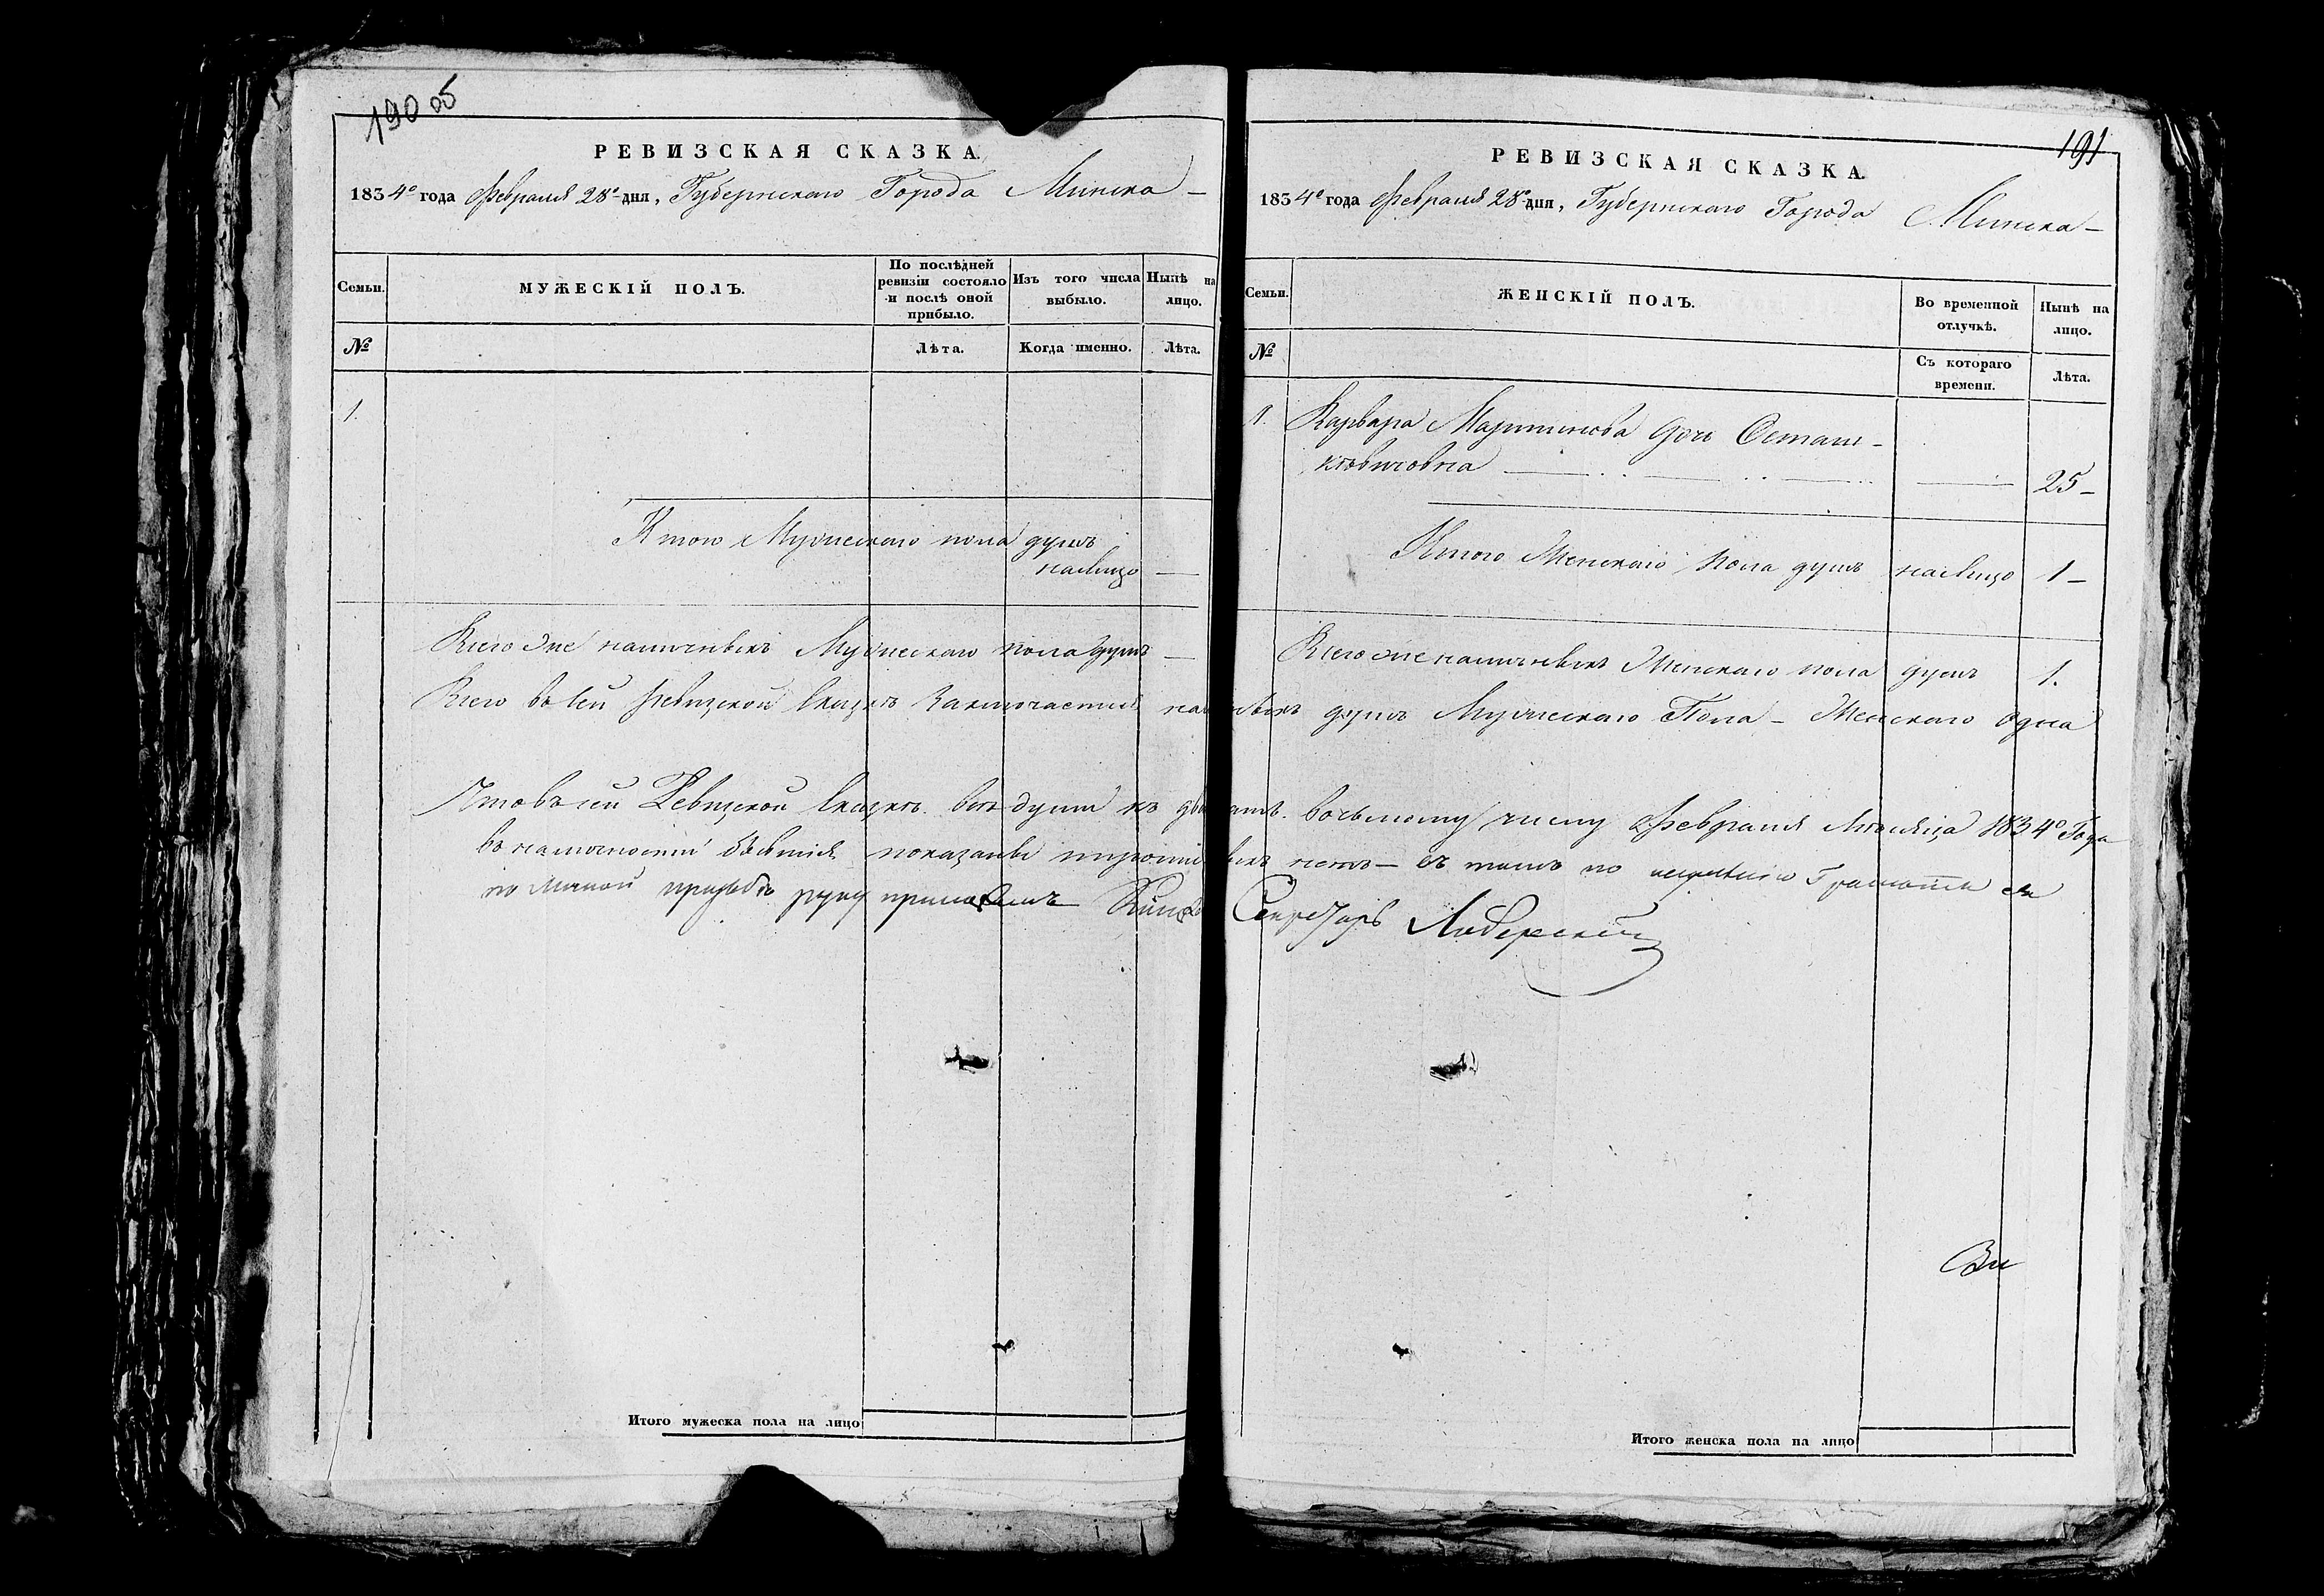 190 об
РЕВИЗСКАЯ СКАЗКА.
1834го года Февраля 28го дня, Губернскаго Города Минска —
Семьи.
МУЖЕСКІЙ ПОЛЪ.
По послѣдней ревизіи состояло и послѣ оной прибыло.
Изъ того числа выбыло.
Нынѣ на лицо.
№
Лѣта.
Когда именно.
Лѣта.
1.
Итого Мужескаго пола душъ
налицо —
Всего же наличныхъ Мужескаго пола душъ —
191
РЕВИЗСКАЯ СКАЗКА.
1834го года Февраля 28го дня, Губернскаго Города Минска —
Семьи.
ЖЕНСКІЙ ПОЛЪ.
Во временной отлучкѣ.
Нынѣ на лицо.
№
Съ котораго времени.
Лѣта.
1. Варвара Мартинова дочь Осташ-
кѣвичовна — 25 —
Итого Женскаго Пола душъ налицо 1 —
Всего же наличныхъ Женскаго пола душъ 1.
Всего въ сей Ревизской Сказкѣ Заключается наличныхъ душъ Мужескаго Пола — Женскаго Одна
Что въ сей Ревизской Сказкѣ всѣ души къ двадцать восьмому числу Февраля Мѣсяца 1834го Года
въ наличности бывшія показаны и прописныхъ нѣтъ — въ томъ по неумѣнію Грамоты ея
по личной прозьбѣ руку приложилъ Секретарь
Итого мужеска пола на лицо
Итого женска пола на лицо